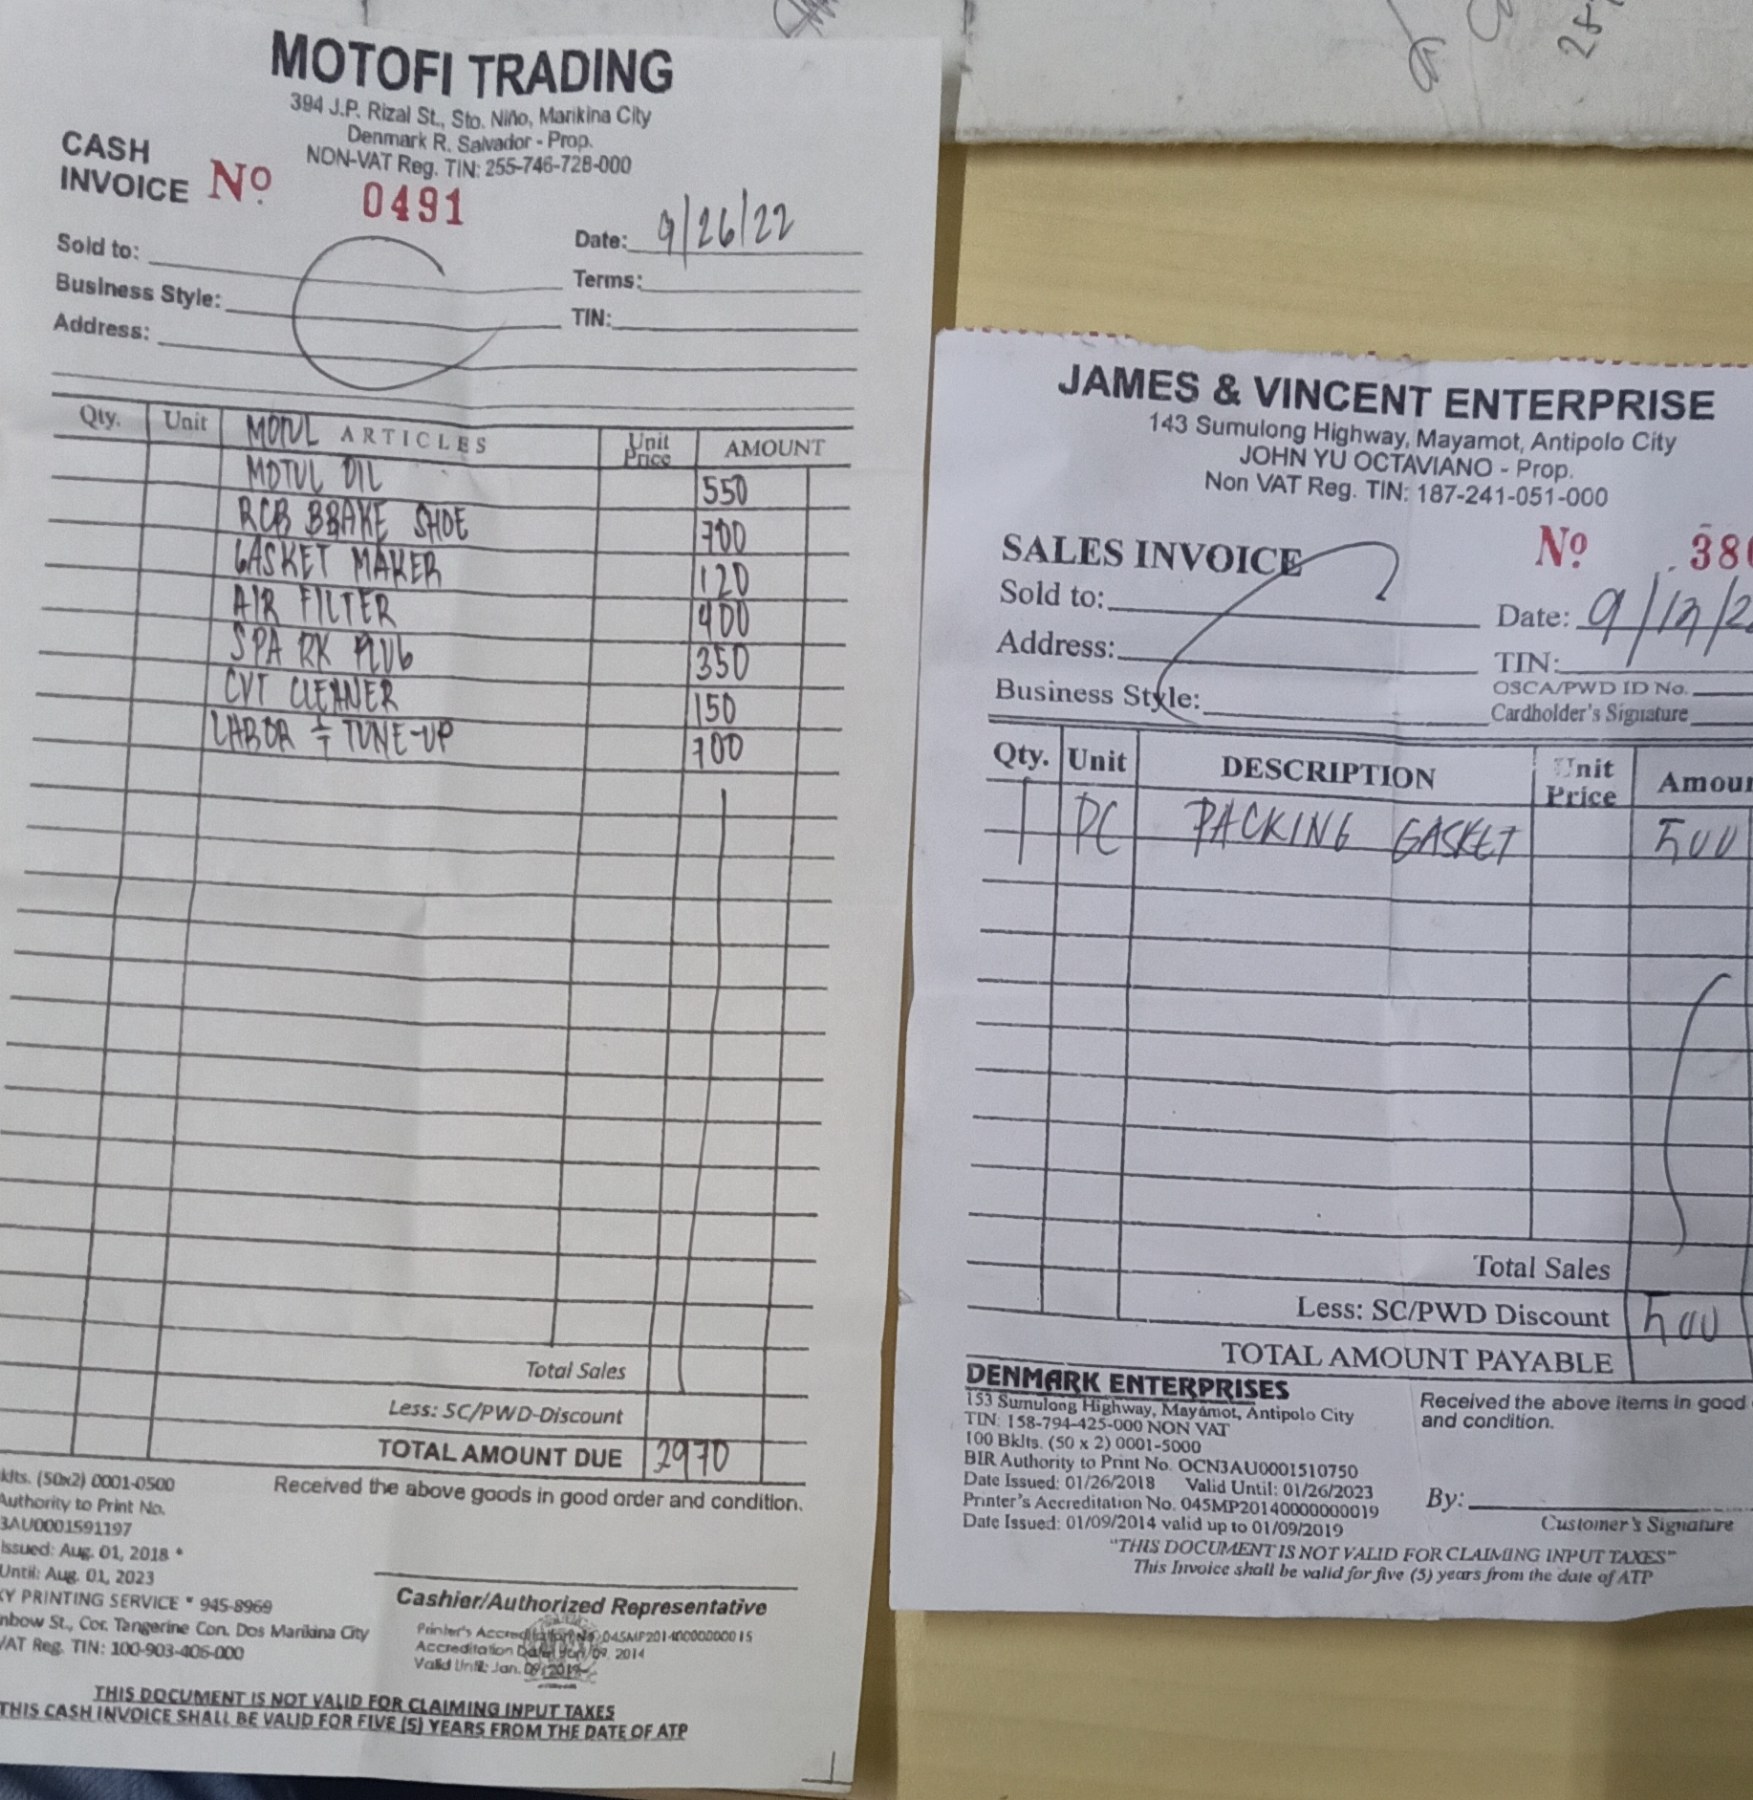 MOTOFI TRADING
394 J.P. Rizal St., Sto. Niño, Marikina City
Denmark R. Salvador - Prop.
NON-VAT Reg. TIN: 255-746-728-000
CASH
INVOICE
Nº. 0491
Sold to:
Business Style:
Address:
Date: 9/26/22
Terms:
TIN:
Qty. Unit MOTUL ARTICLES Unit Price AMOUNT
MOTUL OIL 550
RCB BBAKE SHOE 700
GASKET MAKER 120
AIR FILTER 400
SPARK PLUG 350
CVT CLEANER 150
LABOR + TUNE-UP 700
Total Sales
Less: SC/PWD-Discount
TOTAL AMOUNT DUE 2970
Received the above goods in good order and condition.
klts. (50x2) 0001-0500
Authority to Print No.
3AU0001591197
Issued: Aug. 01, 2018 *
Until: Aug. 01, 2023
KY PRINTING SERVICE * 945-8969
nbow St., Cor. Tangerine Con. Dos Marikina City
VAT Reg. TIN: 100-903-406-000
Cashier/Authorized Representative
Printer's Accreditation No. 045MP20140000000015
Accreditation Date: Jan. 09, 2014
Valid Until: Jan. 09, 2019
THIS DOCUMENT IS NOT VALID FOR CLAIMING INPUT TAXES
THIS CASH INVOICE SHALL BE VALID FOR FIVE (5) YEARS FROM THE DATE OF ATP
JAMES & VINCENT ENTERPRISE
143 Sumulong Highway, Mayamot, Antipolo City
JOHN YU OCTAVIANO - Prop.
Non VAT Reg. TIN: 187-241-051-000
SALES INVOICE
Nº. 38
Sold to:
Address:
Business Style:
Date: 9/
TIN:
OSCA/PWD ID No.
Cardholder's Signature
Qty. Unit DESCRIPTION Unit Price Amoun
1 PC PACKING GASKET 500
Total Sales
Less: SC/PWD Discount 500
TOTAL AMOUNT PAYABLE
DENMARK ENTERPRISES
153 Sumulong Highway, Mayamot, Antipolo City
TIN: 158-794-425-000 NON VAT
100 Bklts. (50 x 2) 0001-5000
BIR Authority to Print No. OCN3AU0001510750
Date Issued: 01/26/2018 Valid Until: 01/26/2023
Printer's Accreditation No. 045MP20140000000019
Date Issued: 01/09/2014 valid up to 01/09/2019
Received the above items in good
and condition.
By:
Customer's Signature
"THIS DOCUMENT IS NOT VALID FOR CLAIMING INPUT TAXES"
This Invoice shall be valid for five (5) years from the date of ATP